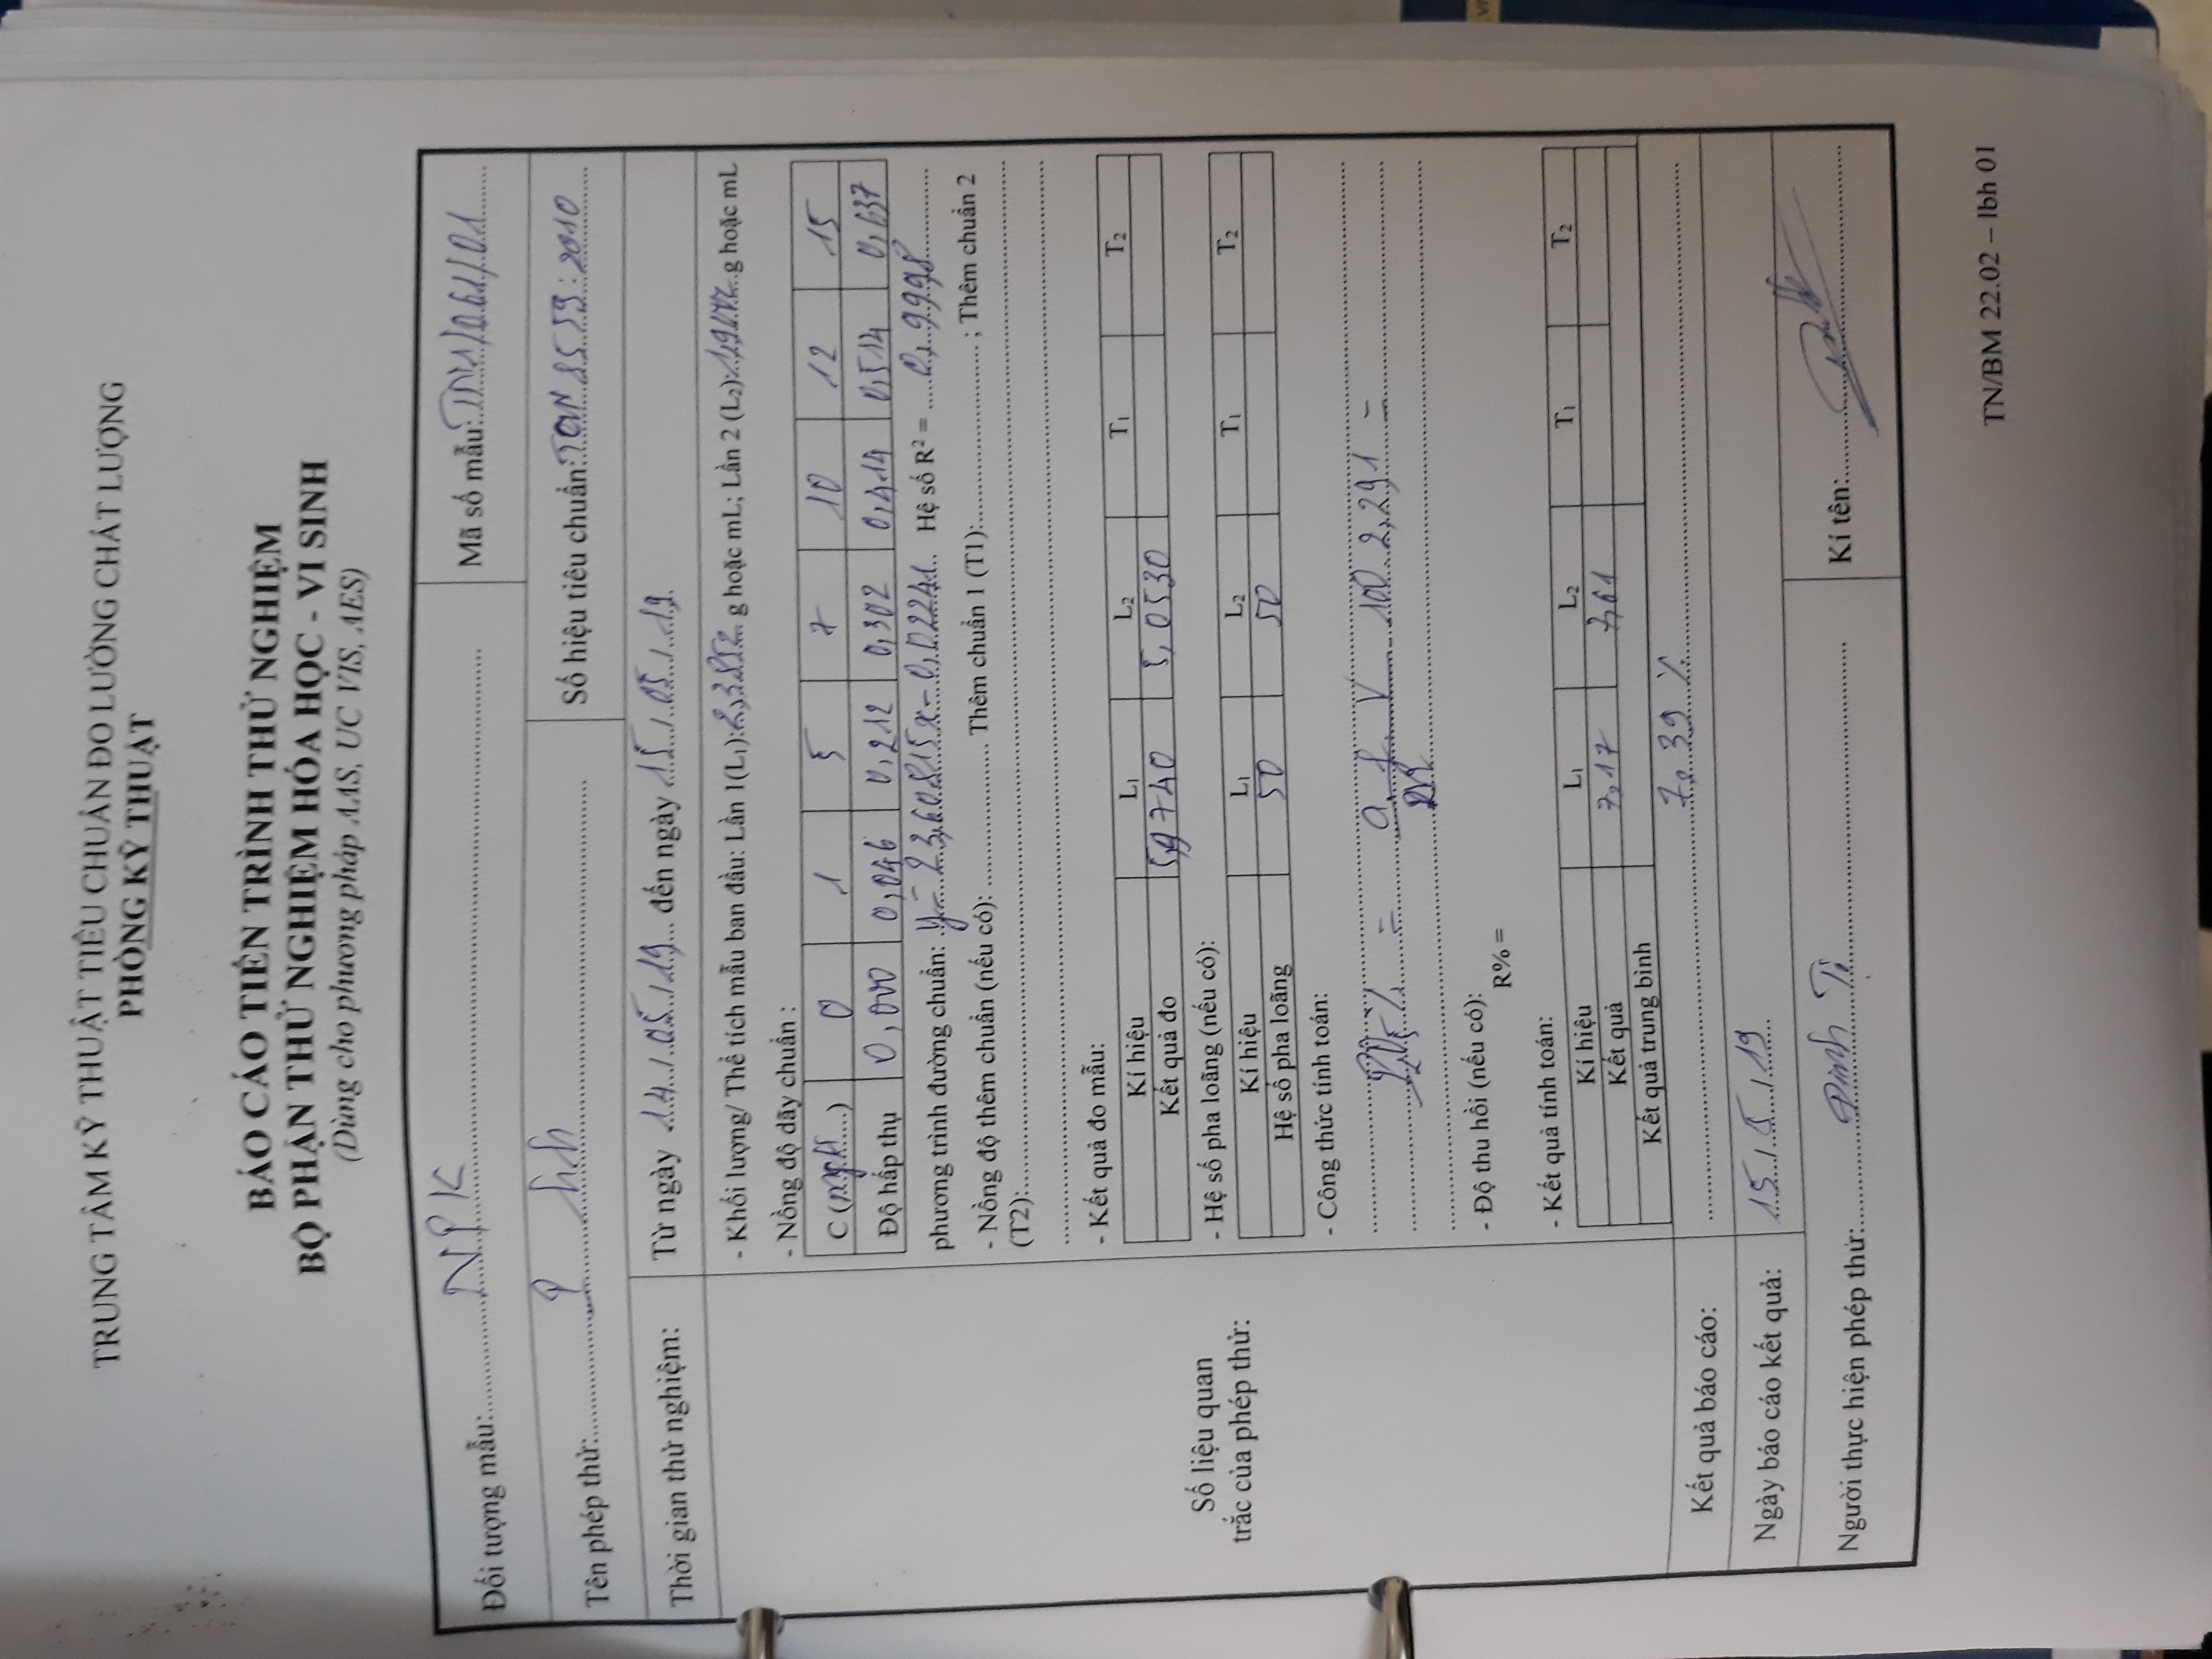 TRUNG TÂM KỸ THUẬT TIÊU CHUẨN ĐO LƯỜNG CHẤT LƯỢNG
PHÒNG KỸ THUẬT
BÁO CÁO TIẾN TRÌNH THỬ NGHIỆM
BỘ PHẬN THỬ NGHIỆM HÓA HỌC - VI SINH
(Dùng cho phương pháp AAS, UC VIS, AES)
Đối tượng mẫu: NPK
Mã số mẫu: TN1/061/01
Tên phép thử: P hh
Số hiệu tiêu chuẩn: TCVN 8559:2010
Thời gian thử nghiệm:
Từ ngày 14/05/19 đến ngày 15/05/19
Số liệu quan
trắc của phép thử:
- Khối lượng/ Thể tích mẫu ban đầu: Lần 1(L₁): 2,3852 g hoặc mL; Lần 2 (L₂): g hoặc mL
- Nồng độ dãy chuẩn :
C (mg/l) 0 1 5 7 10 12 15
Độ hấp thụ 0,000 0,046 0,212 0,302 0,414 0,514 0,637
phương trình đường chuẩn: y = 23,60815x - 0,02241 Hệ số R² = 0,9998
- Nồng độ thêm chuẩn (nếu có): Thêm chuẩn 1 (T1): ; Thêm chuẩn 2
(T2):
- Kết quả đo mẫu:
Kí hiệu L₁ L₂ T₁ T₂
Kết quả đo 5,9740 5,0530
- Hệ số pha loãng (nếu có):
Kí hiệu L₁ L₂ T₁ T₂
Hệ số pha loãng 50 50
- Công thức tính toán:
P₂O₅% = a. f. V 100 2,291 =
- Độ thu hồi (nếu có):
R% =
- Kết quả tính toán:
Kí hiệu L₁ L₂ T₁ T₂
Kết quả 7,17 7,61
Kết quả trung bình
Kết quả báo cáo: 7,39 %
Ngày báo cáo kết quả: 15/5/19
Người thực hiện phép thử: Đinh
Kí tên:
TN/BM 22.02 – lbh 01